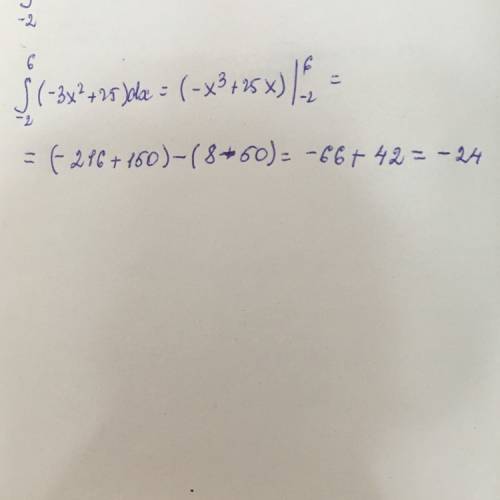 -2
∫₋₂⁶ (-3x²+25)dx = (-x³+25x) |₋₂⁶ =
= (-216+150)-(8-50) = -66+42 = -24